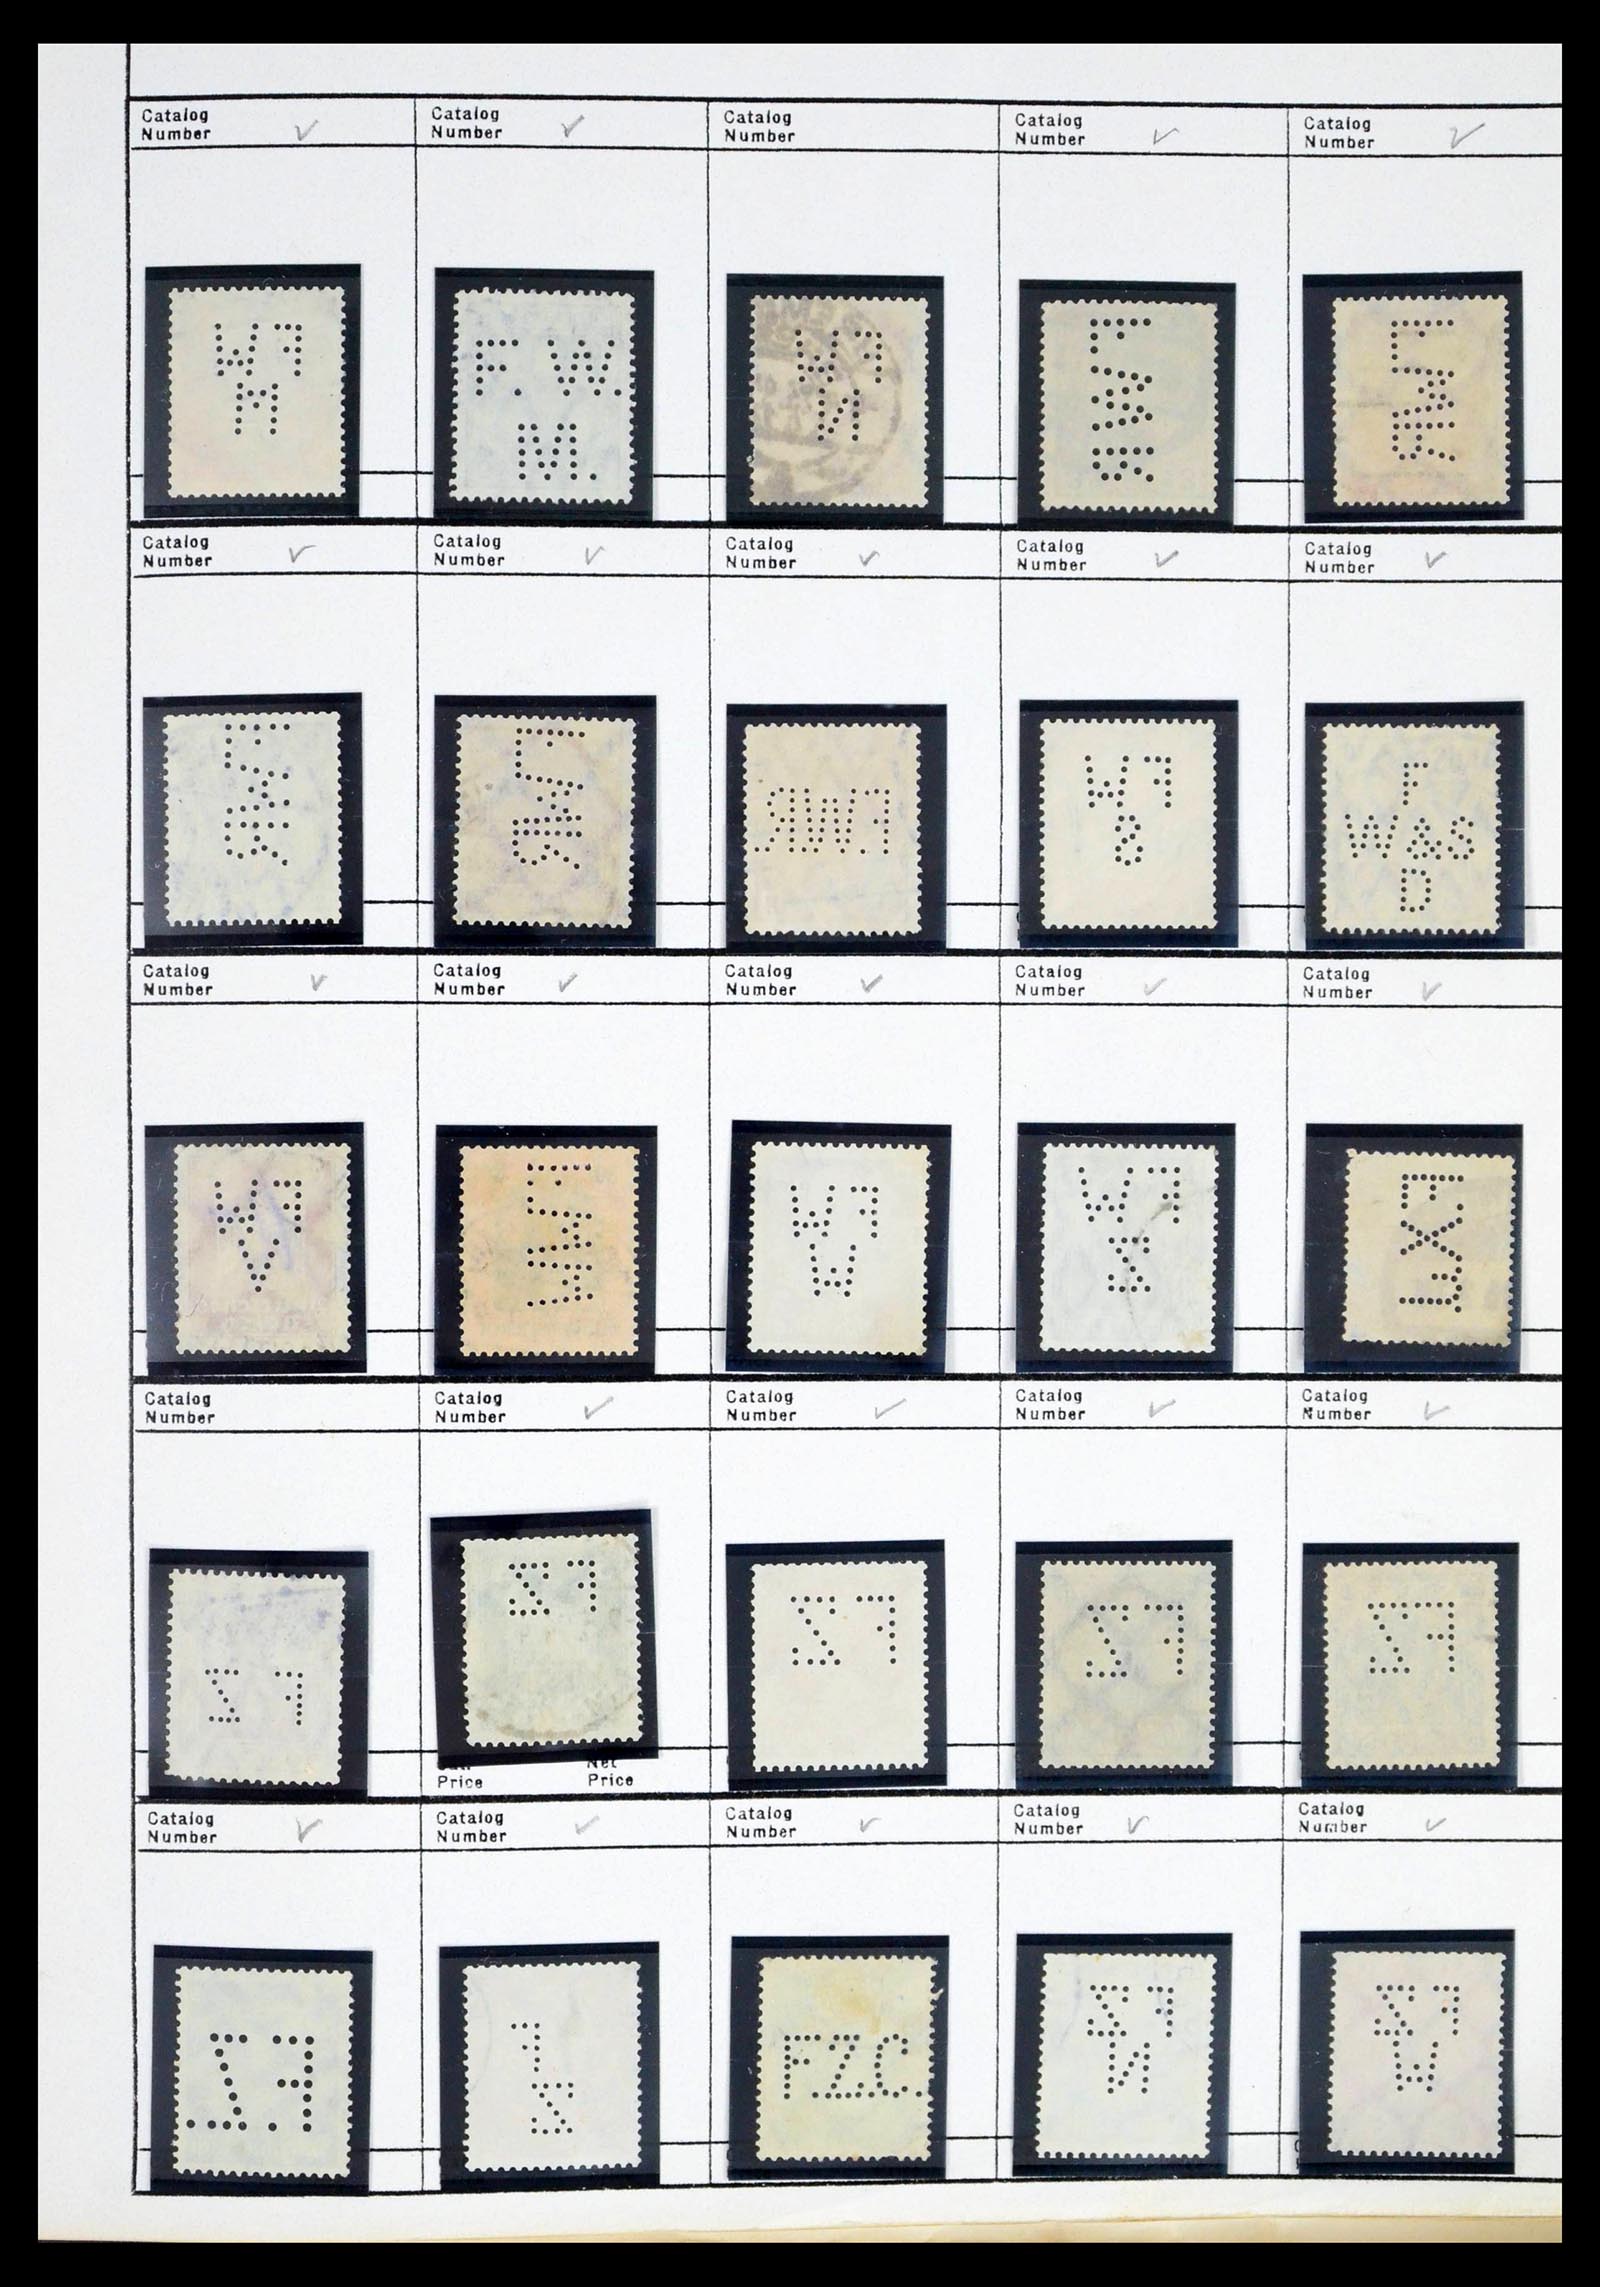 Catalog Catalog Catalog Catalog Catalog
Number Number Number Number Number
F W
M
F. W.
M.
F W
N
F W R
F W R
Catalog Catalog Catalog Catalog Catalog
Number Number Number Number Number
F W R
F W R
F.W.R.
F W
S
F
W & S
D
Catalog Catalog Catalog Catalog Catalog
Number Number Number Number Number
F W
V
F W W
F W
F W
Z
F X F
Catalog Catalog Catalog Catalog Catalog
Number Number Number Number Number
F Z
F Z
F Z
F Z
F Z
Price
Net
Price
Catalog Catalog Catalog Catalog Catalog
Number Number Number Number Number
F.Z.
F
Z
F.Z.C.
F Z
N
F Z
W